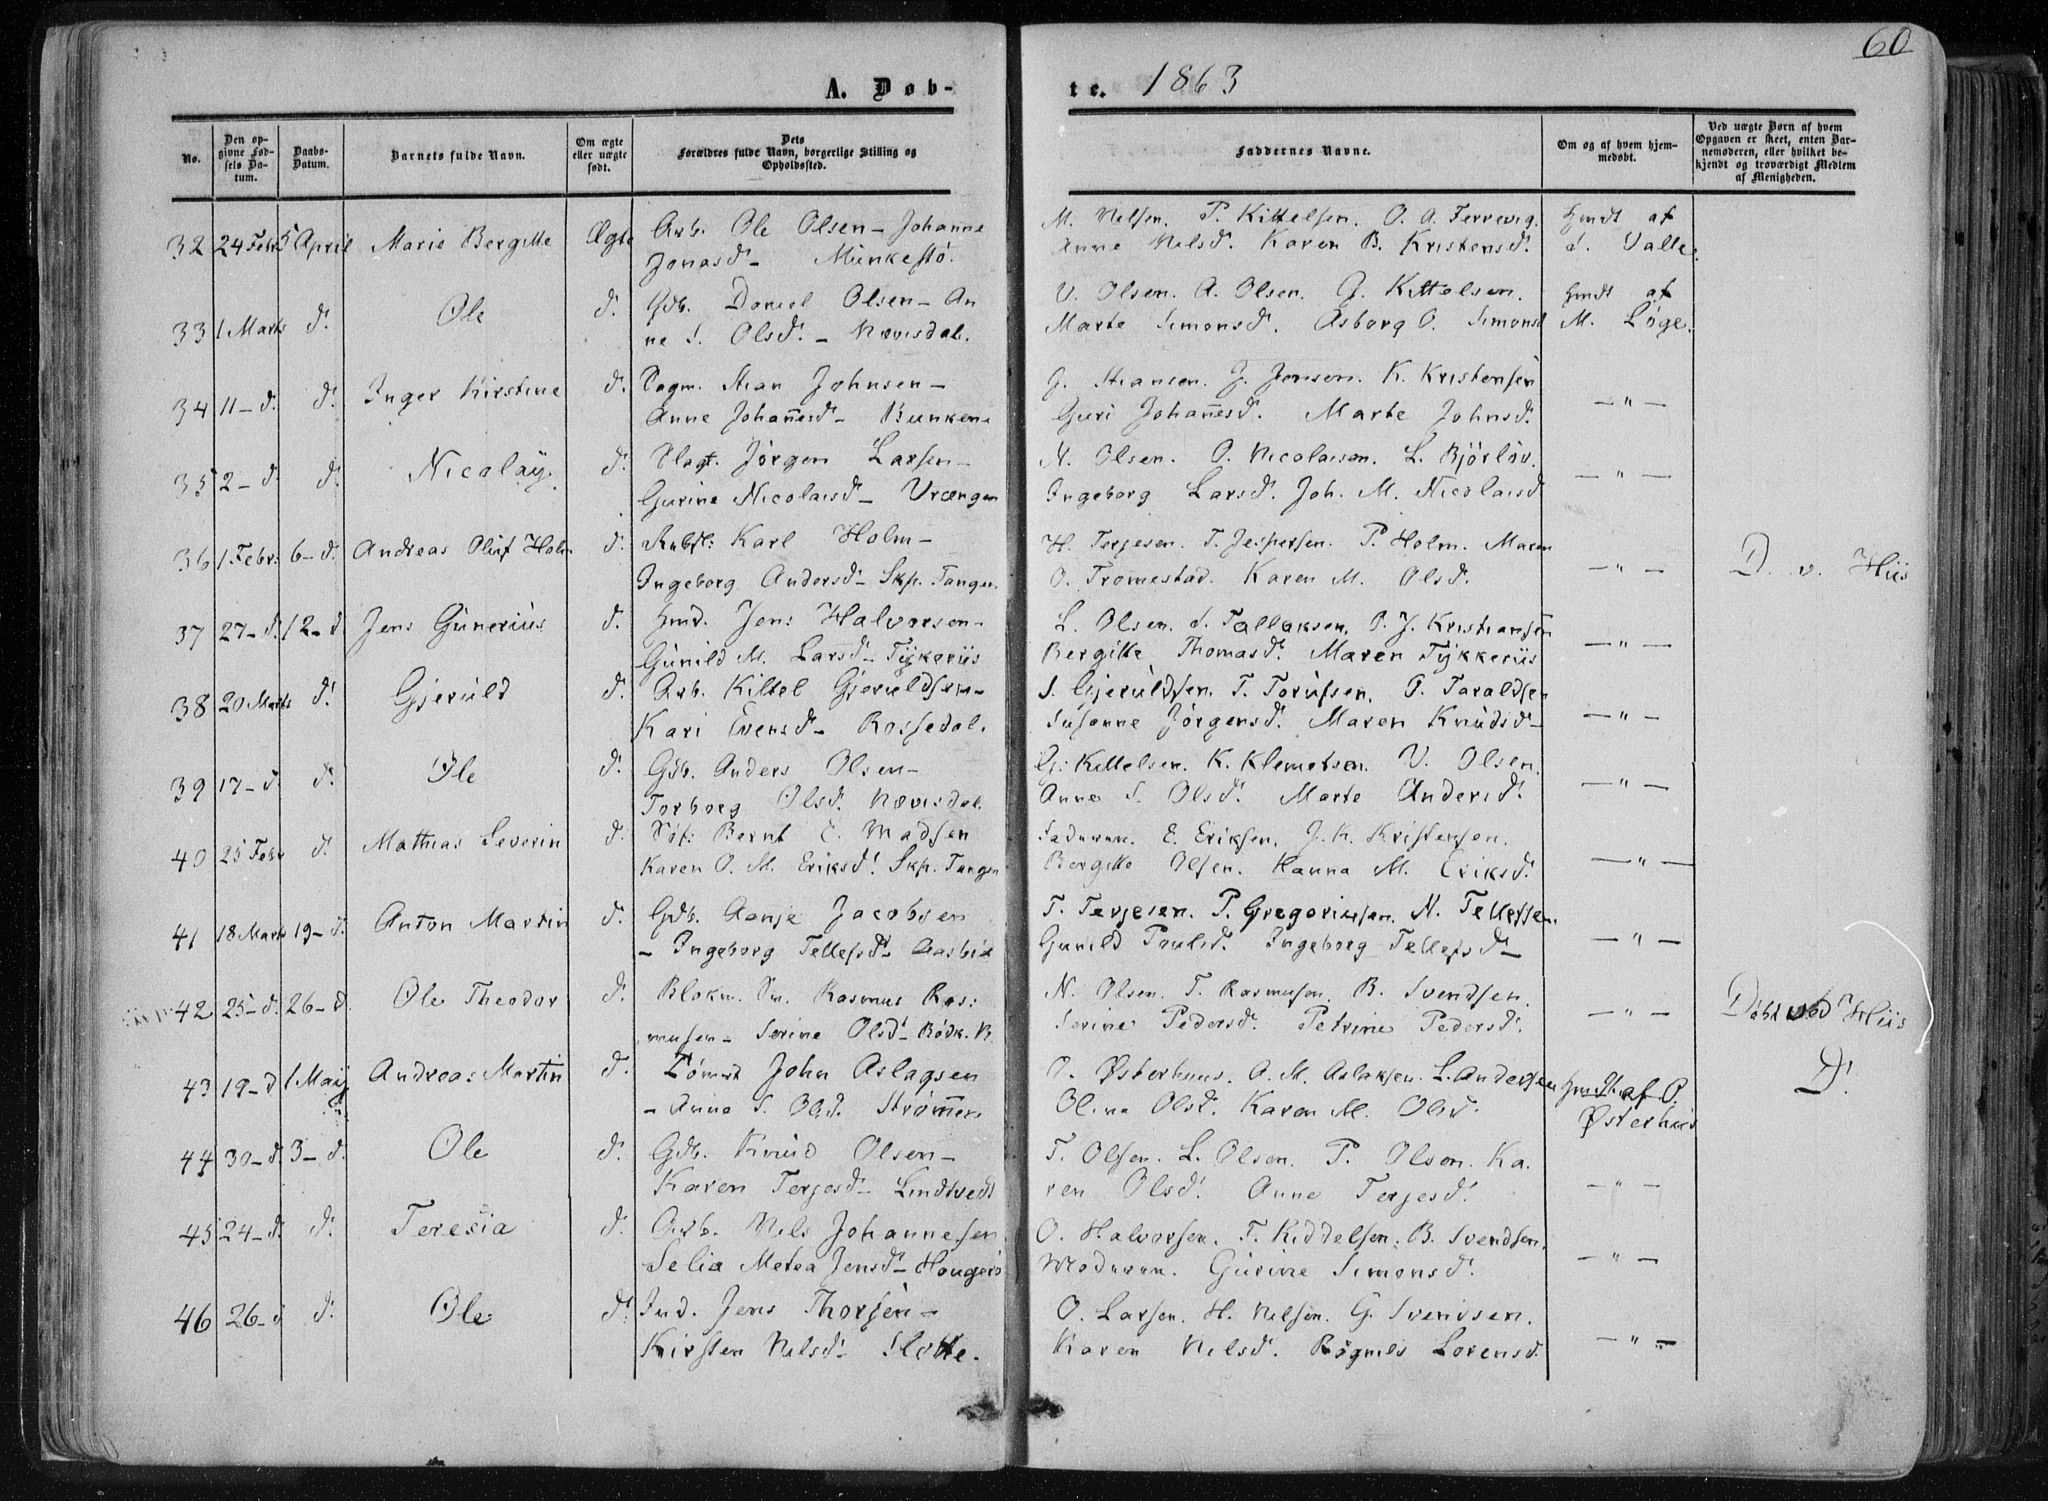 60
A. Døb-
te. 1863
No.
Den opgivne Fødsels Datum.
Daabs-Datum.
Barnets fulde Navn.
Om ægte eller uægte født.
Dets Forældres fulde Navn, borgerlige Stilling og Opholdssted.
Faddernes Navne.
Om og af hvem hjemmedøbt.
Ved uægte Børn af hvem Opgaven er skeet, enten Barnemoderen, eller hvilket bekjendt og troværdigt Medlem af Menigheden.
32 24 Febr 5 April Marie Bergitte Ægte Arb. Ole Olsen – Johanne M. Nelsen. P. Kittelsen. O. A. Fervevig. hmdt af
Jonasd. – Munkestø. Anne Nelsd. Karen B. Kristensd. S. Valle.
33 1 Marts d. Ole d. Gdb. Daniel Olsen – An V. Olsen. A. Olsen. G. Kittelsen. hmdt af
ne S. Olsd. – Nævisdal. Marte Simonsd. Asborg O. Simonsd M. Løge.
34 11 – d. d. Inger Kirstine d. Dagm. Stian Johnsen – G. Stiansen. J. Jensen. K. Kristensen
Anne Johannesd – Bunken – Guri Johannesd. Marte Johnsd. – " –
35 2 – d. d. Nicolay. d. Slagt. Jørgen Larsen – N. Olsen. O. Nicolaisen. L. Bjørløv.
Gurine Nicolaisd – Vrængen Ingeborg Larsd. Joh. M. Nicolaisd – " –
36 1 Febr: 6 – d. Andreas Oluf Holm d. Karl Holm – H. Terjesen. T. Jespersen. P. Holm. Maren
Ingeborg Andersd – Skp. Tangen. O. Tromestad. Karen M. Olsd. – " – D. v. Hiis
37 27 – d. 12 – d Jens Gunerius d. Hmd. Jens Halvorsen – L. Olsen. S. Tallaksen. P. J. Kristiansen
Gunild M. Larsd – Tykeriis Bergitte Thomasd. Maren Tykkeriis – " –
38 20 Marts d. Gjeruld d. Arb. Kittel Gjeruldsen – S. Gjeruldsen. T. Torufsen. O. Taraldsen
Kari Evensd – Rossedal. Susanne Jørgensd. Maren Knudsd – – " –
39 17 – d. d. Ole d. Gdb. Anders Olsen – G. Kittelsen. K. Klemetsen. V. Olsen.
Torborg Olsd. Nævisdal. Anne S. Olsd. Marte Andersd. – " –
40 25 Febr d. Mathias Severin d. Søf: Bernt E. Madsen Faderen. E. Eriksen. J. K. Kristensen.
Karen O. M. Eriksd. Skp. Tangen Bergitte Olsen. Hanna M. Eriksd. – " –
41 18 Marts 19 – d. Anton Martin d. Gdb. Aanje Jacobsen T. Terjesen. P. Gregoriusen. N. Tellefsen.
– Ingeborg Tellefsd – Aasbie Gunild Poulsd. Ingeborg Tellefsd – – " –
42 25 – d. 26 – d. Ole Theodor d. Blokm. Sv. Rasmus Ras: N. Olsen. T. Rasmusen. B. Svendsen.
musen – Serine Olsd – Rødk. B. Serine Pedersd. Petrine Pedersd. – " – Døbt ved Hiis
43 19 – d 1 Maij Andreas Martin d. Tømmt John Aslagsen O. Østerhuus. A. M. Aslaksen. L. Andersen hmdt af O. D.
– Anne S. Olsd. Strømmen. Oline Olsd. Karen M. Olsd. Østerhuus
44 30 – d. 3 – d. Ole d. Gdb. Knud Olsen – T. Olsen. L. Olsen. P. Olsen. Ka.
Karen Terjesd – Lindtvedt ren Olsd. Anne Terjesd. – " –
45 24 – d. d. Teresia d. Arb. Nils Johannesen O. Halvorsen. T. Kiddelsen. B. Svendsen.
Selia Metea Jensd – Hougerø Moderen. Gurine Simonsd. – " –
46 26 – d d. Ole d. Ind. Jens Thorsen – O. Larsen. H. Nelsen. G. Svenssen.
Kirsten Nelsd – Slotte. Karen Nelsd. Rognild Lorensd. – " –